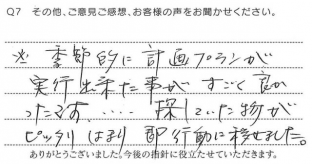 Q7 その他、ご意見ご感想、お客様の声をお聞かせください。
※ 季節的に計画プランが
実行出来た事がすごく良か
ったです.....探していた物が
ピッタリはまり即行動に移せました。
ありがとうございました。今後の指針に役立たせていただきます。